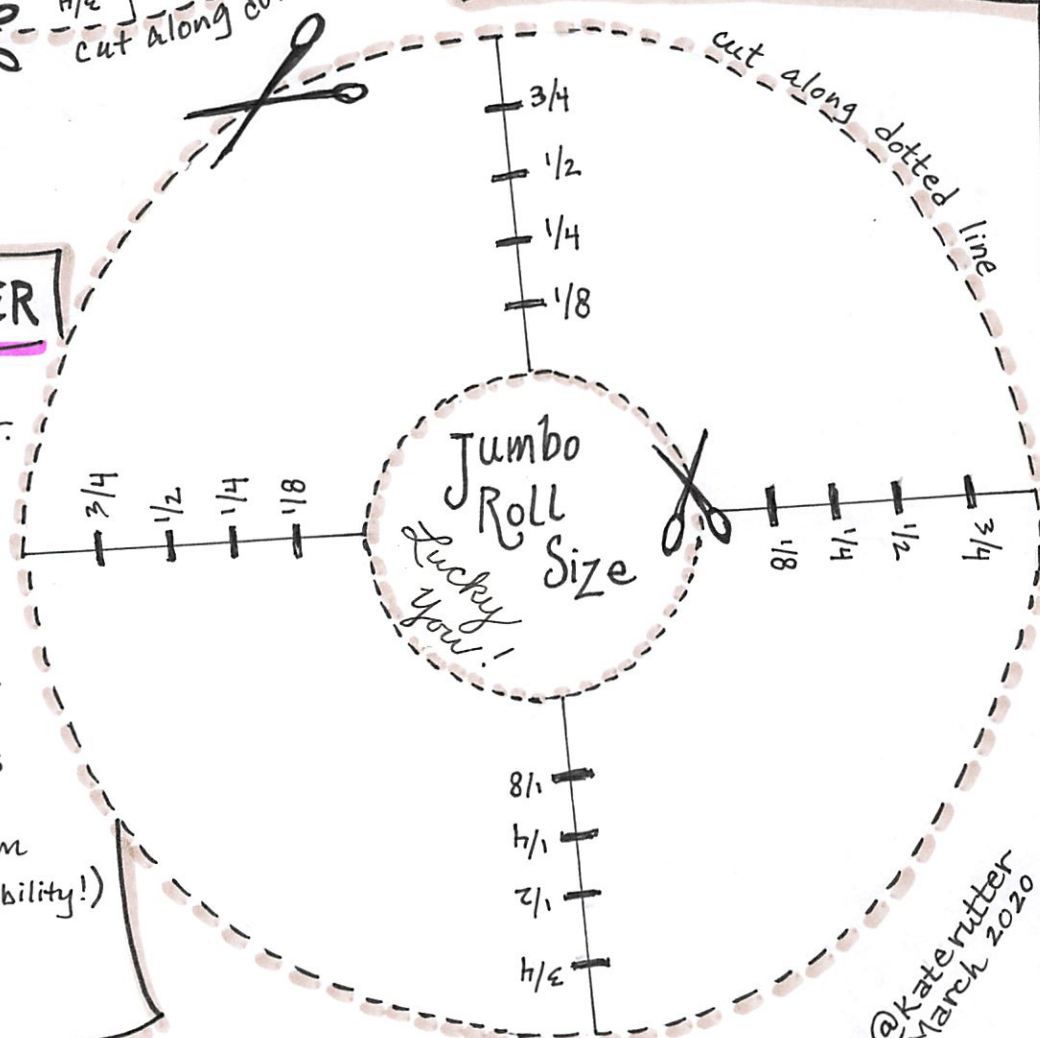 cut along
cut along dotted line
3/4
1/2
1/4
1/8
ER
3/4
1/2
1/4
1/8
Jumbo
Roll
Size
Lucky
You!
1/8
1/4
1/2
3/4
1/8
1/4
1/2
3/4
bility!)
@katerutter
March 2020